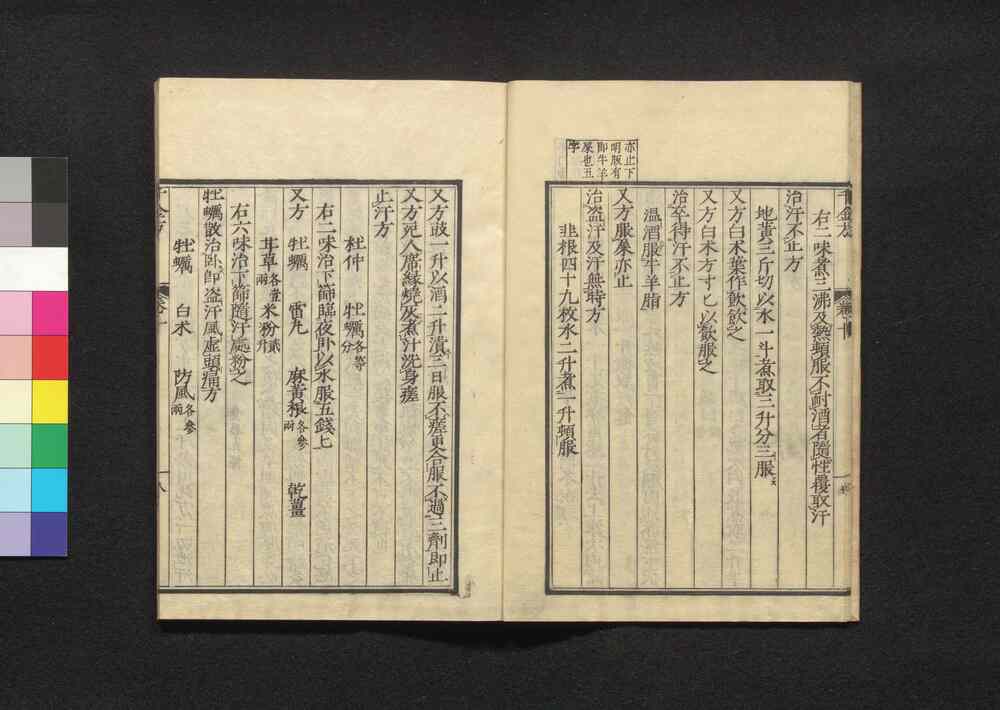 亦止下
明版有
即牛羊
屎也五
字
千金方
卷十
右二味煮三沸及熱頓服不耐酒者隨性覆取汗
治汗不止方
地黃三斤切以水一斗煮取三升分三服
又方白术葉作飲飲之
又方白术方寸匕以飲服之
治卒得汗不止方
溫酒服牛羊脂
又方服屎亦止
治盗汗及汗無時方
韭根四十九枚水二升煮一升頓服
又方豉一升以酒二升漬三日服不瘥更合服不過三劑即止
又方死人席緣燒灰煮汁洗身瘥
止汗方
杜仲 牡蠣各等分
右二味治下篩臨夜卧以水服五錢匕
又方 牡蠣 雷丸 麻黃根各參兩 乾薑
甘草各壹兩 米粉貳升
右六味治下篩隨汗處粉之
牡蠣散治卧即盗汗風虛頭痛方
牡蠣 白术 防風各參兩